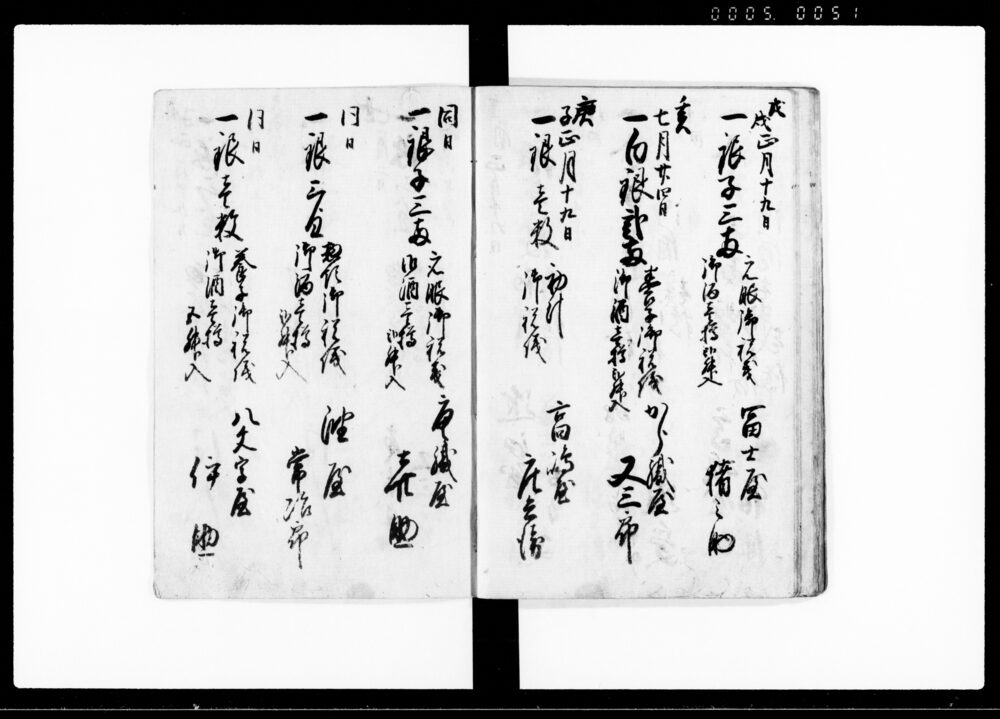 0005. 0051
戊
戌正月十九日
一銀子三両
元服御祝義
御酒壱樽
冨士屋
猪之助
己亥
七月廿四日
一白銀弐両
養子御祝儀
御酒壱樽
からし屋
又三郎
庚
子正月十九日
一銀壱枚
初斗
御祝儀
高嶋屋
庄兵衛
同日
一銀子三両
元服御祝義
御酒壱樽
屋
喜助
同日
一銀三匁
御祝儀
御酒壱樽
屋
常治郎
同日
一銀壱枚
養子御祝儀
御酒壱樽
五升入
八文字屋
伊助